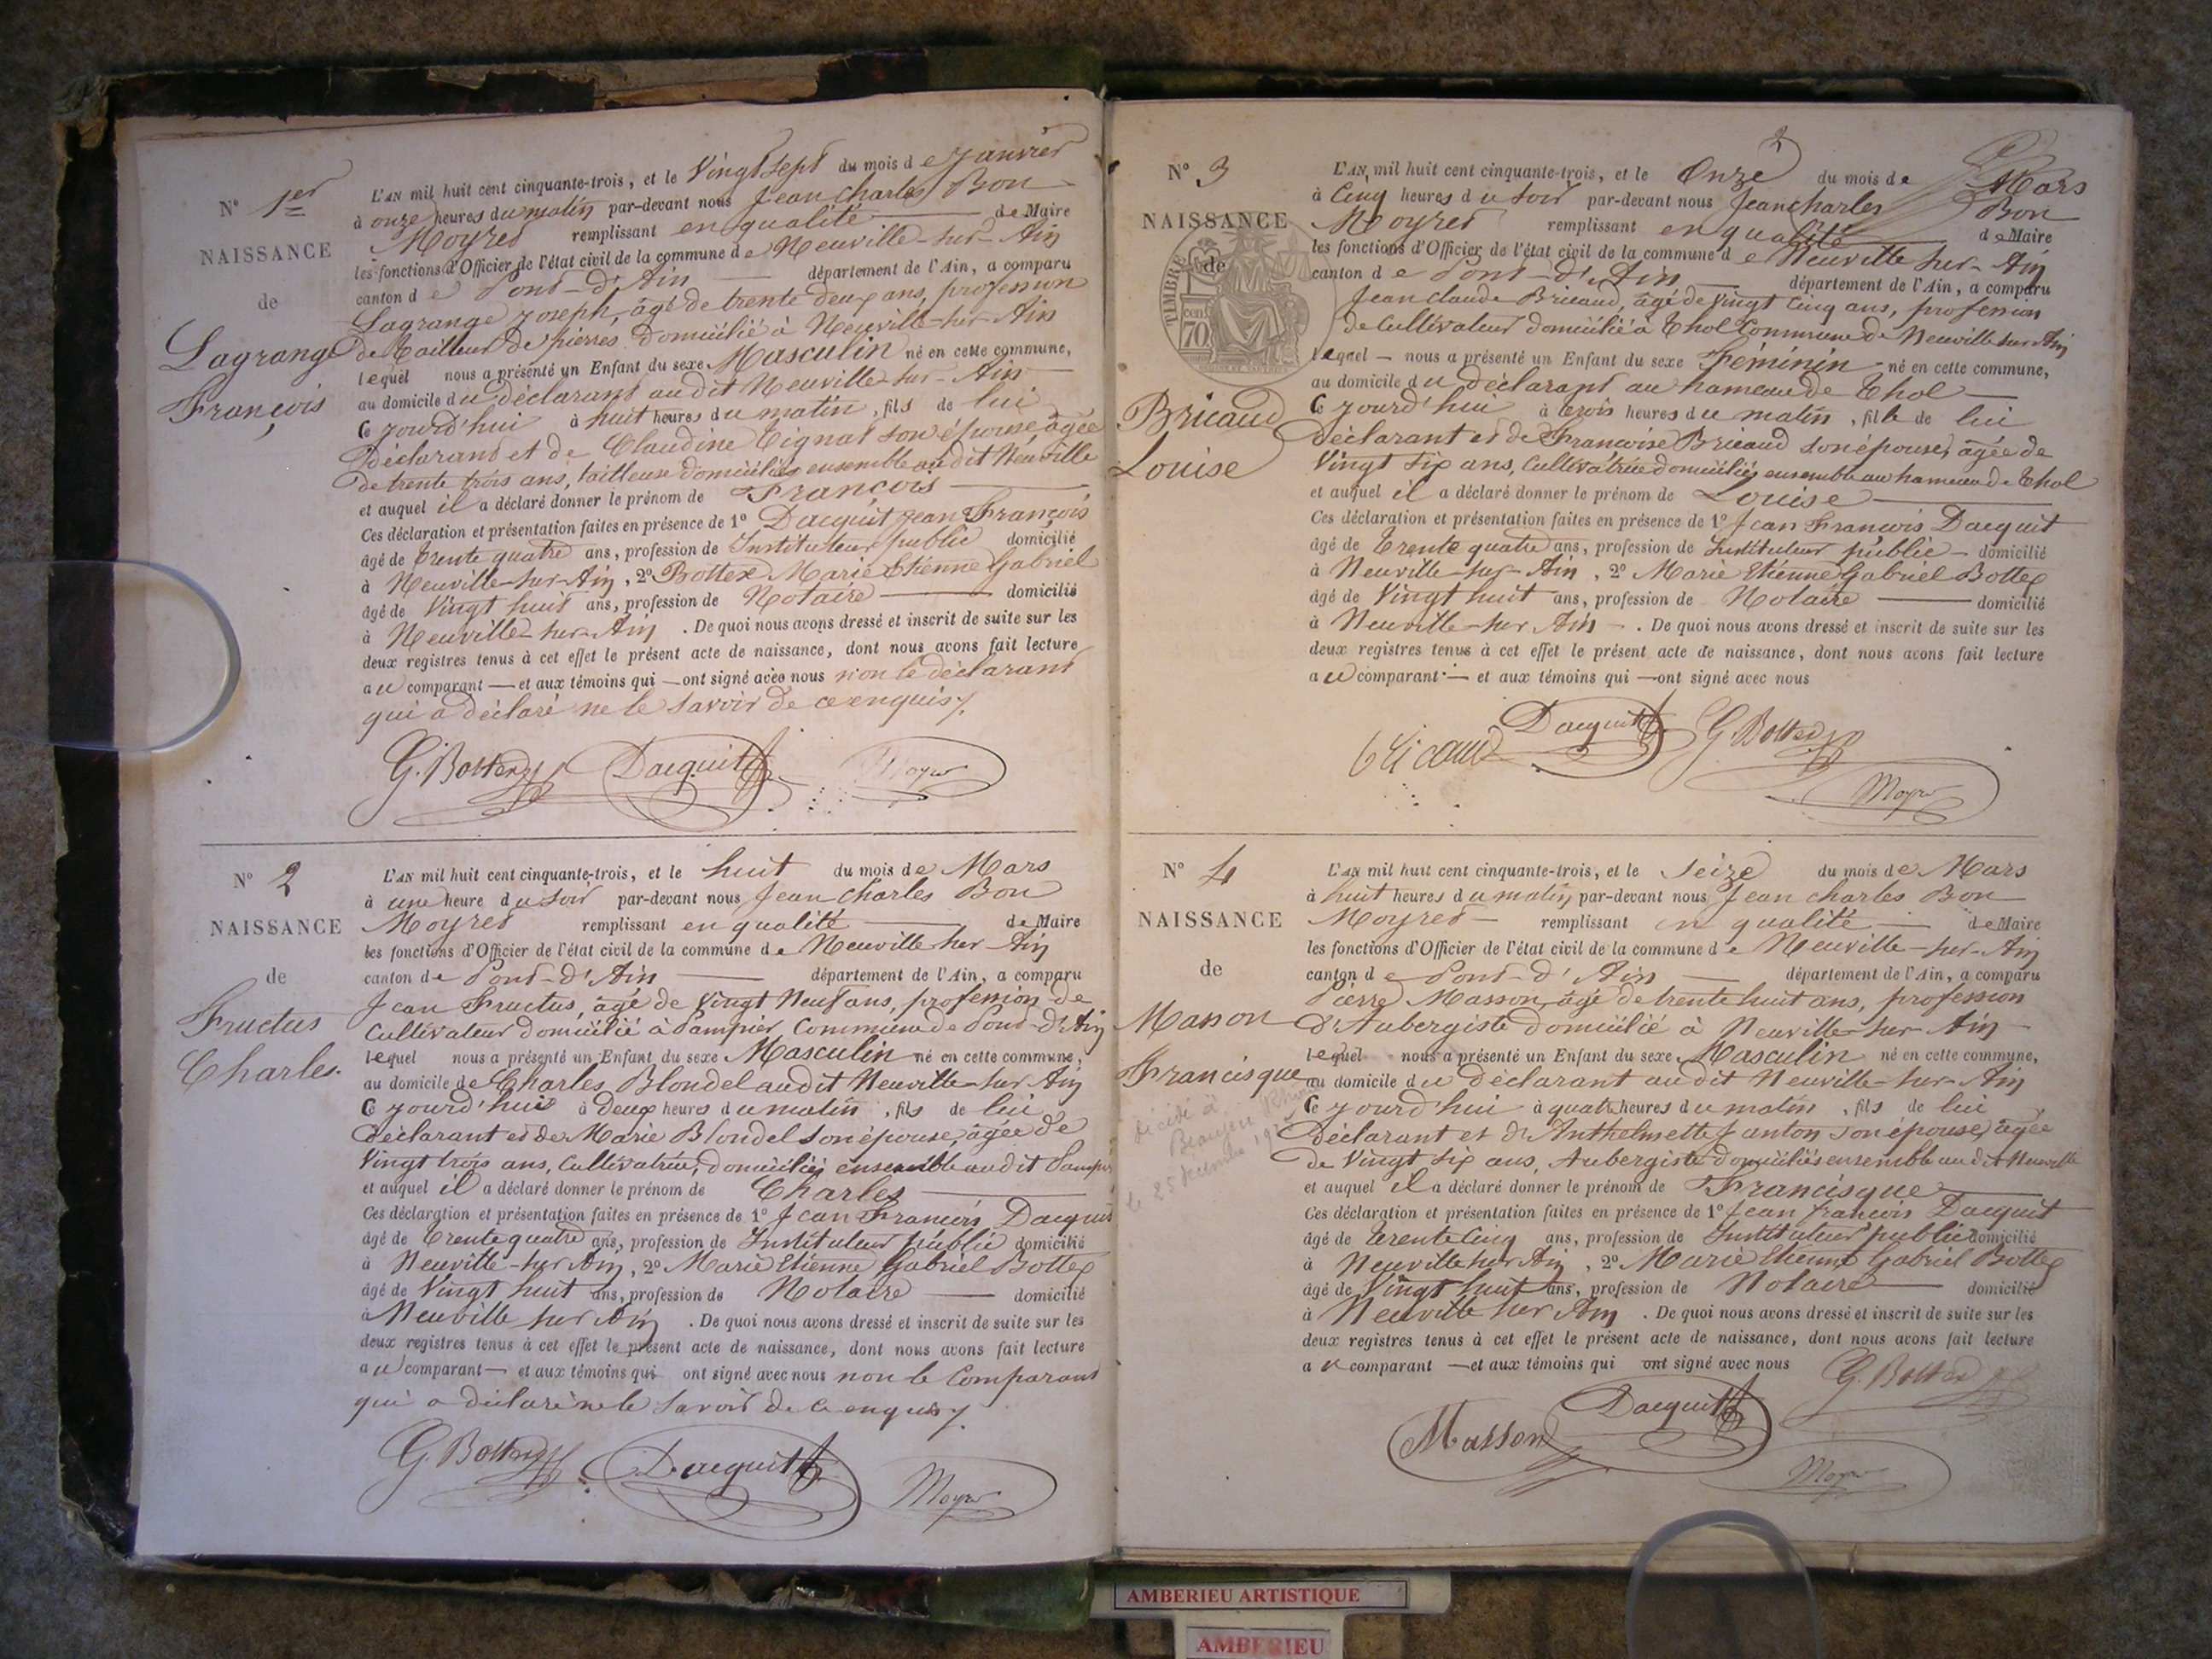 N° 1er
NAISSANCE
de
Lagrange
François
L'AN mil huit cent cinquante-trois, et le Vingt Sept du mois de Janvier
à onze heures du matin par-devant nous Jean Charles Bon
Moyret remplissant en qualité de Maire
les fonctions d'Officier de l'état civil de la commune de Neuville-sur-Ain
canton de Pont-d'Ain département de l'Ain, a comparu
Lagrange Joseph, âgé de trente deux ans, profession
de tailleur de pierres domicilié à Neuville-sur-Ain
lequel nous a présenté un Enfant du sexe Masculin né en cette commune,
au domicile du déclarant audit Neuville-sur-Ain
Ce jourd'hui à huit heures du matin, fils de lui
Déclarant et de Claudine Tignat son épouse, âgée
de trente trois ans, tailleuse domiciliés ensemble audit Neuville
et auquel il a déclaré donner le prénom de François
Ces déclaration et présentation faites en présence de 1° Dacquit Jean François
âgé de trente quatre ans, profession de Instituteur public domicilié
à Neuville-sur-Ain, 2° Bottex Marie Etienne Gabriel
âgé de Vingt huit ans, profession de Notaire domicilié
à Neuville-sur-Ain. De quoi nous avons dressé et inscrit de suite sur les
deux registres tenus à cet effet le présent acte de naissance, dont nous avons fait lecture
au comparant — et aux témoins qui — ont signé avec nous non le déclarant
qui a déclaré ne le savoir de ce enquis.
G. Bottex Dacquit Moyret
N° 2
NAISSANCE
de
Fructus
Charles.
L'AN mil huit cent cinquante-trois, et le huit du mois de Mars
à une heure du soir par-devant nous Jean Charles Bon
Moyret remplissant en qualité de Maire
les fonctions d'Officier de l'état civil de la commune de Neuville sur Ain
canton de Pont-d'Ain département de l'Ain, a comparu
Jean Fructus, âgé de Vingt Neuf ans, profession de
Cultivateur domicilié à Dampier, Commune de Pont-d'Ain
lequel nous a présenté un Enfant du sexe Masculin né en cette commune,
au domicile de Charles Blondel audit Neuville-sur Ain
Ce jourd'hui à Deux heures du matin, fils de lui
déclarant et de Marie Blondel son épouse, âgée de
Vingt trois ans, Cultivatrice, domiciliés ensemble audit
et auquel il a déclaré donner le prénom de Charles
Ces déclaration et présentation faites en présence de 1° Jean François Dacquit
âgé de trente quatre ans, profession de Instituteur public domicilié
à Neuville-sur Ain, 2° Marie Etienne Gabriel Bottex
âgé de Vingt huit ans, profession de Notaire — domicilié
à Neuville sur Ain. De quoi nous avons dressé et inscrit de suite sur les
deux registres tenus à cet effet le présent acte de naissance, dont nous avons fait lecture
au comparant — et aux témoins qui ont signé avec nous non le Comparant
qui a déclaré ne le savoir de ce enquis.
G. Bottex Dacquit Moyret
2
N° 3
NAISSANCE
de
TIMBRE
70 cen.
Bricaud
Louise
L'AN mil huit cent cinquante-trois, et le Onze du mois de Mars
à Cinq heures du soir par-devant nous Jean Charles Bon
Moyret remplissant en qualité de Maire
les fonctions d'Officier de l'état civil de la commune de Neuville sur-Ain
canton de Pont-d'Ain département de l'Ain, a comparu
Jean Claude Bricaud, âgé de Vingt Cinq ans, profession
de Cultivateur domicilié à Thol Commune de Neuville sur Ain
lequel — nous a présenté un Enfant du sexe Féminin né en cette commune,
au domicile du déclarant au hameau de Thol
Ce jourd'hui à trois heures du matin, fille de lui
déclarant et de Françoise Bricaud son épouse, âgée de
Vingt Six ans, Cultivatrice domiciliés ensemble au hameau de Thol
et auquel il a déclaré donner le prénom de Louise
Ces déclaration et présentation faites en présence de 1° Jean François Dacquit
âgé de trente quatre ans, profession de Instituteur public — domicilié
à Neuville-sur-Ain, 2° Marie Etienne Gabriel Bottex
âgé de Vingt huit ans, profession de Notaire — domicilié
à Neuville-sur Ain —. De quoi nous avons dressé et inscrit de suite sur les
deux registres tenus à cet effet le présent acte de naissance, dont nous avons fait lecture
au comparant — et aux témoins qui — ont signé avec nous
Bricaud Dacquit G. Bottex
Moyret
N° 4
NAISSANCE
de
Masson
Francisque
décédé à
Beaujeu Rhône
le 25 décembre
L'AN mil huit cent cinquante-trois, et le Seize du mois de Mars
à huit heures du matin par-devant nous Jean Charles Bon
Moyret — remplissant en qualité — de Maire
les fonctions d'Officier de l'état civil de la commune de Neuville-sur-Ain
canton de Pont-d'Ain — département de l'Ain, a comparu
Pierre Masson, âgé de trente huit ans, profession
d'Aubergiste domicilié à Neuville-sur-Ain
lequel nous a présenté un Enfant du sexe Masculin né en cette commune,
au domicile du déclarant audit Neuville-sur-Ain
Ce jourd'hui à quatre heures du matin, fils de lui
déclarant et d'Anthelmette Janton son épouse, âgée
de Vingt Six ans, Aubergiste domiciliés ensemble audit Neuville
et auquel il a déclaré donner le prénom de Francisque
Ces déclaration et présentation faites en présence de 1° Jean François Dacquit
âgé de trente Cinq ans, profession de Instituteur public domicilié
à Neuville sur Ain, 2° Marie Etienne Gabriel Bottex
âgé de Vingt huit ans, profession de Notaire domicilié
à Neuville sur Ain. De quoi nous avons dressé et inscrit de suite sur les
deux registres tenus à cet effet le présent acte de naissance, dont nous avons fait lecture
au comparant — et aux témoins qui ont signé avec nous G. Bottex
Masson Dacquit
Moyret
AMBERIEU ARTISTIQUE
AMBERIEU